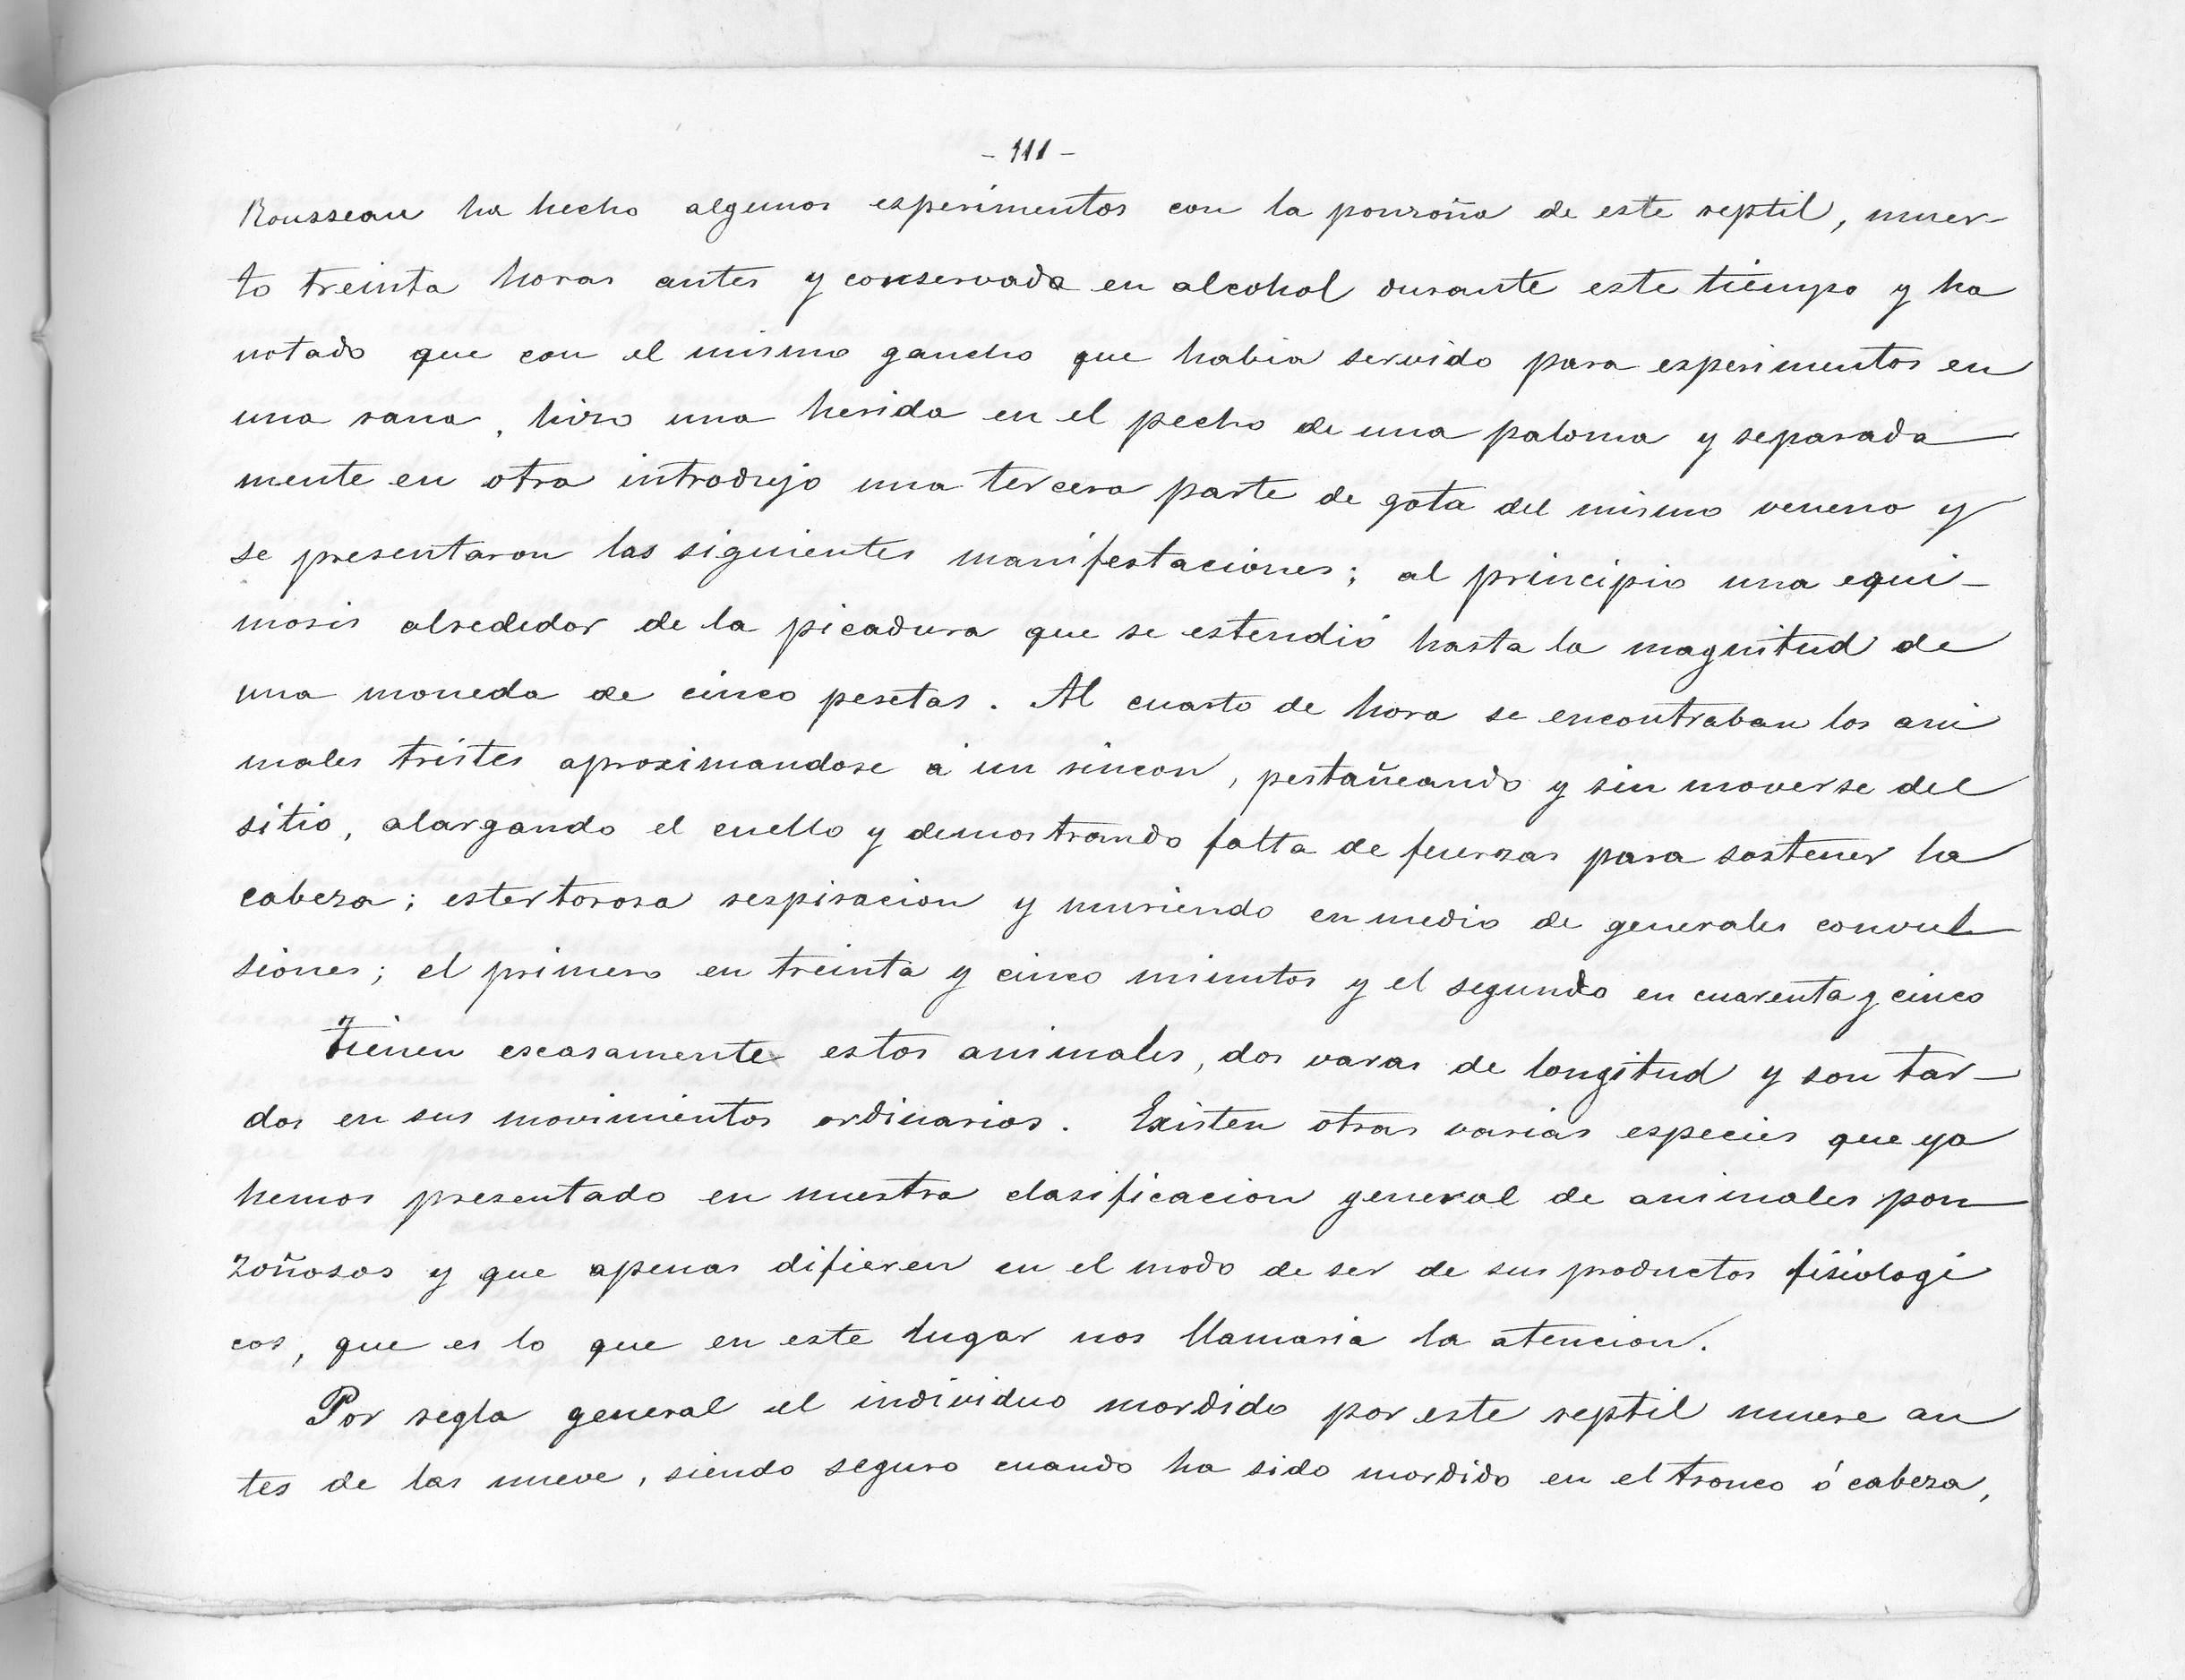 - 111 -
Rousseau ha hecho algunos esperimentos con la ponzoña de este reptil, muer-
to treinta horas antes y conservada en alcohol durante este tiempo y ha
notado que con el mismo gancho que habia servido para esperimentos en
una rana, hizo una herida en el pecho de una paloma y separada
mente en otra introdujo una tercera parte de gota del mismo veneno y
se presentaron las siguientes manifestaciones; al principio una equi-
mosis alrededor de la picadura que se estendió hasta la magnitud de
una moneda de cinco pesetas. Al cuarto de hora se encontraban los ani
males tristes aproximandose á un rincon, pestañeando y sin moverse del
sitio, alargando el cuello y demostrando falta de fuerzas para sostener la
cabeza; estertorosa respiracion y muriendo en medio de generales convul
siones; el primero en treinta y cinco minutos y el segundo en cuarenta y cinco
Tienen escasamente estos animales, dos varas de longitud y son tar-
dos en sus movimientos ordinarios. Existen otras varias especies que ya
hemos presentado en nuestra clasificacion general de animales pon
zoñosos y que apenas difieren en el modo de ser de sus productos fisiologi
cos, que es lo que en este lugar nos llamaria la atencion.
Por regla general el individuo mordido por este reptil muere an
tes de las nueve, siendo seguro cuando ha sido mordido en el tronco ó cabeza,